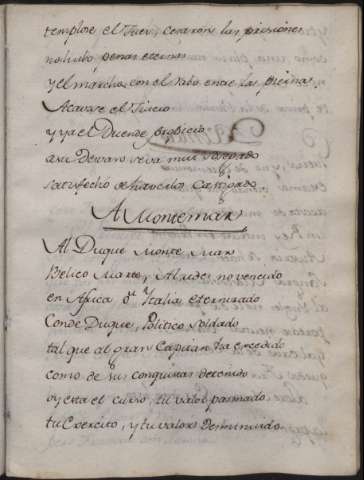 templose el Juez, cesaron las prisiones
no hubo penas eternas
y el marcho con el rabo entre las piernas
Acavase el Juicio
y ya el Duende propicio
a su Desvan se va mui
satisfecho de
A Montemar
Al Duque Monte Mar
Belico Marte, Alcides no vencido
en Africa é Italia exterminado
Conde Duque, Politico, Soldado
tal que al gran Capitan ha excedido
como de sus conquistas detenido
oy esta el curso, tu valor parado
tu Exercito, y tu valor deminuido